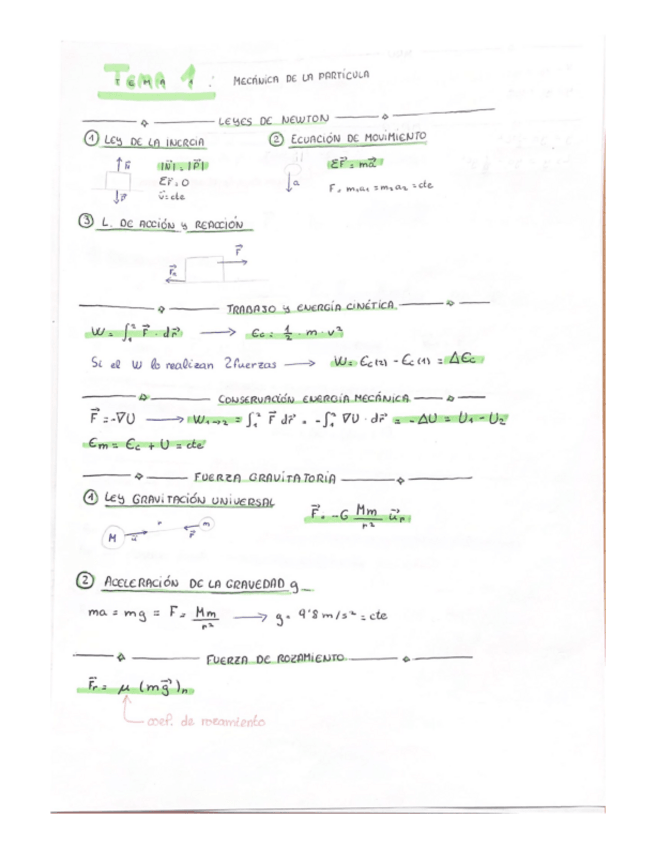 TEMA 1: MECÁNICA DE LA PARTÍCULA
LEYES DE NEWTON
① LEY DE LA INERCIA
N⃗
P⃗
|N⃗| = |P⃗|
ΣF⃗ = 0
v⃗ = cte
② ECUACIÓN DE MOVIMIENTO
a
ΣF⃗ = ma⃗
F = m₁a₁ = m₂a₂ = cte
③ L. DE ACCIÓN y REACCIÓN
F⃗
F⃗ʀ
TRABAJO y ENERGÍA CINÉTICA
W = ∫₁² F⃗ · dr⃗ → Ec = 1/2 · m · v²
Si el W lo realizan 2 fuerzas → W = Ec(2) - Ec(1) = ΔEc
CONSERVACIÓN ENERGÍA MECÁNICA
F⃗ = -∇U → W₁→₂ = ∫₁² F⃗ dr⃗ = -∫₁² ∇U · dr⃗ = -ΔU = U₁ - U₂
Em = Ec + U = cte
FUERZA GRAVITATORIA
① LEY GRAVITACIÓN UNIVERSAL
M
u⃗
r
F⃗
m
F⃗ = -G Mm/r² u⃗r
② ACELERACIÓN DE LA GRAVEDAD g
ma = mg = F = Mm/r² → g = 9'8 m/s² = cte
FUERZA DE ROZAMIENTO
F⃗r = μ (mg⃗)n
coef. de rozamiento